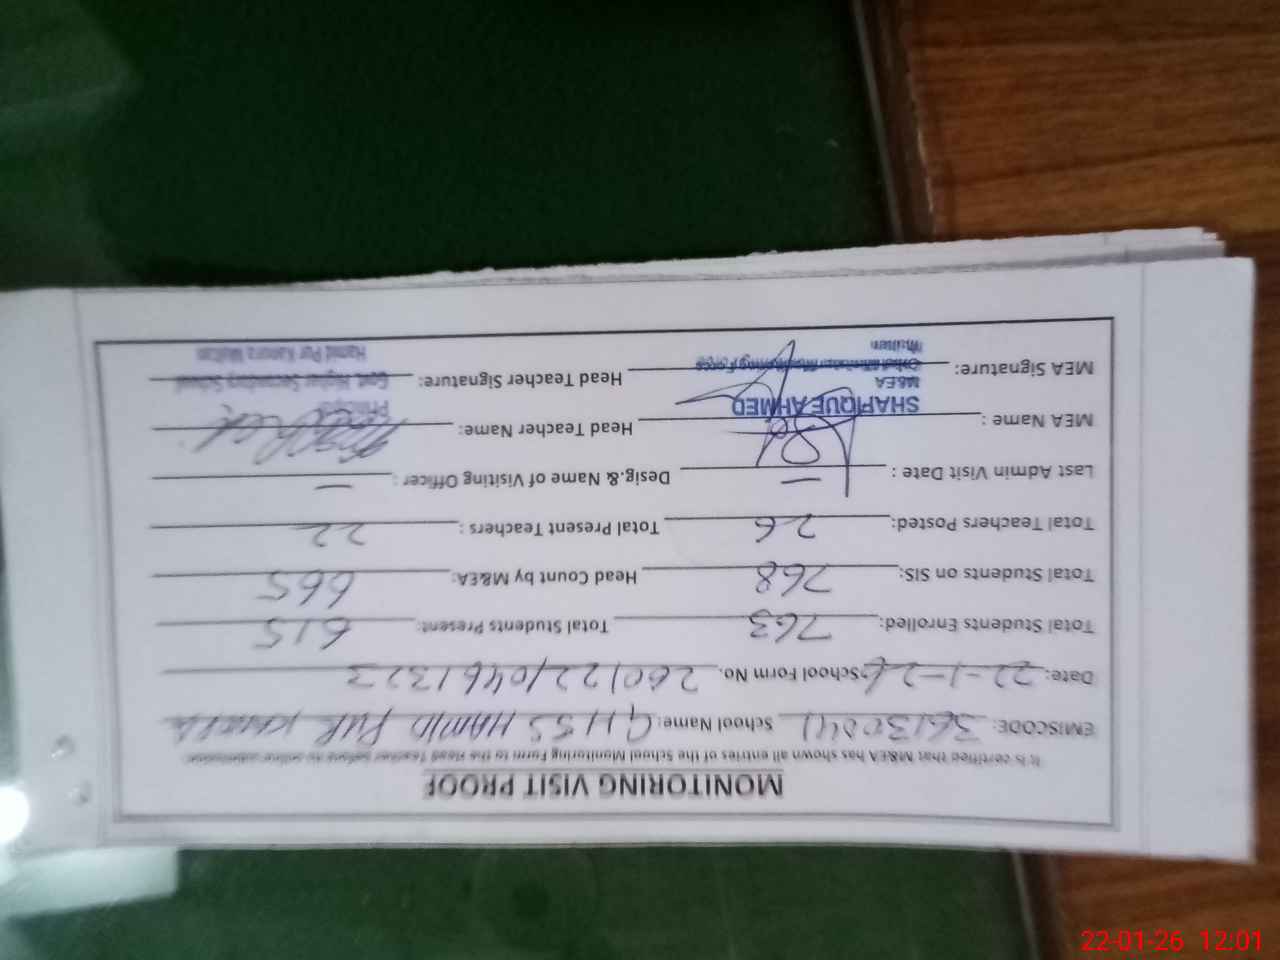 MONITORING VISIT PROOF
It is certified that M&EA has shown all entries of the School Monitoring Form to the Head Teacher before its online submission.
EMISCODE: 36130041 School Name: GHSS HAMID PUR KANORA
Date: 22-1-26 School Form No. 260122104461323
Total Students Enrolled: 763 Total Students Present: 615
Total Students on SIS: 768 Head Count by M&EA: 665
Total Teachers Posted: 26 Total Present Teachers: 22
Last Admin Visit Date: — Desig.& Name of Visiting Officer: —
MEA Name: SHAFIQUE AHMED Head Teacher Name:
M&EA
Principal
MEA Signature: Head Teacher Signature: Govt. Higher Secondary School
Hamid Pur Kanora Multan
22-01-26 12:01